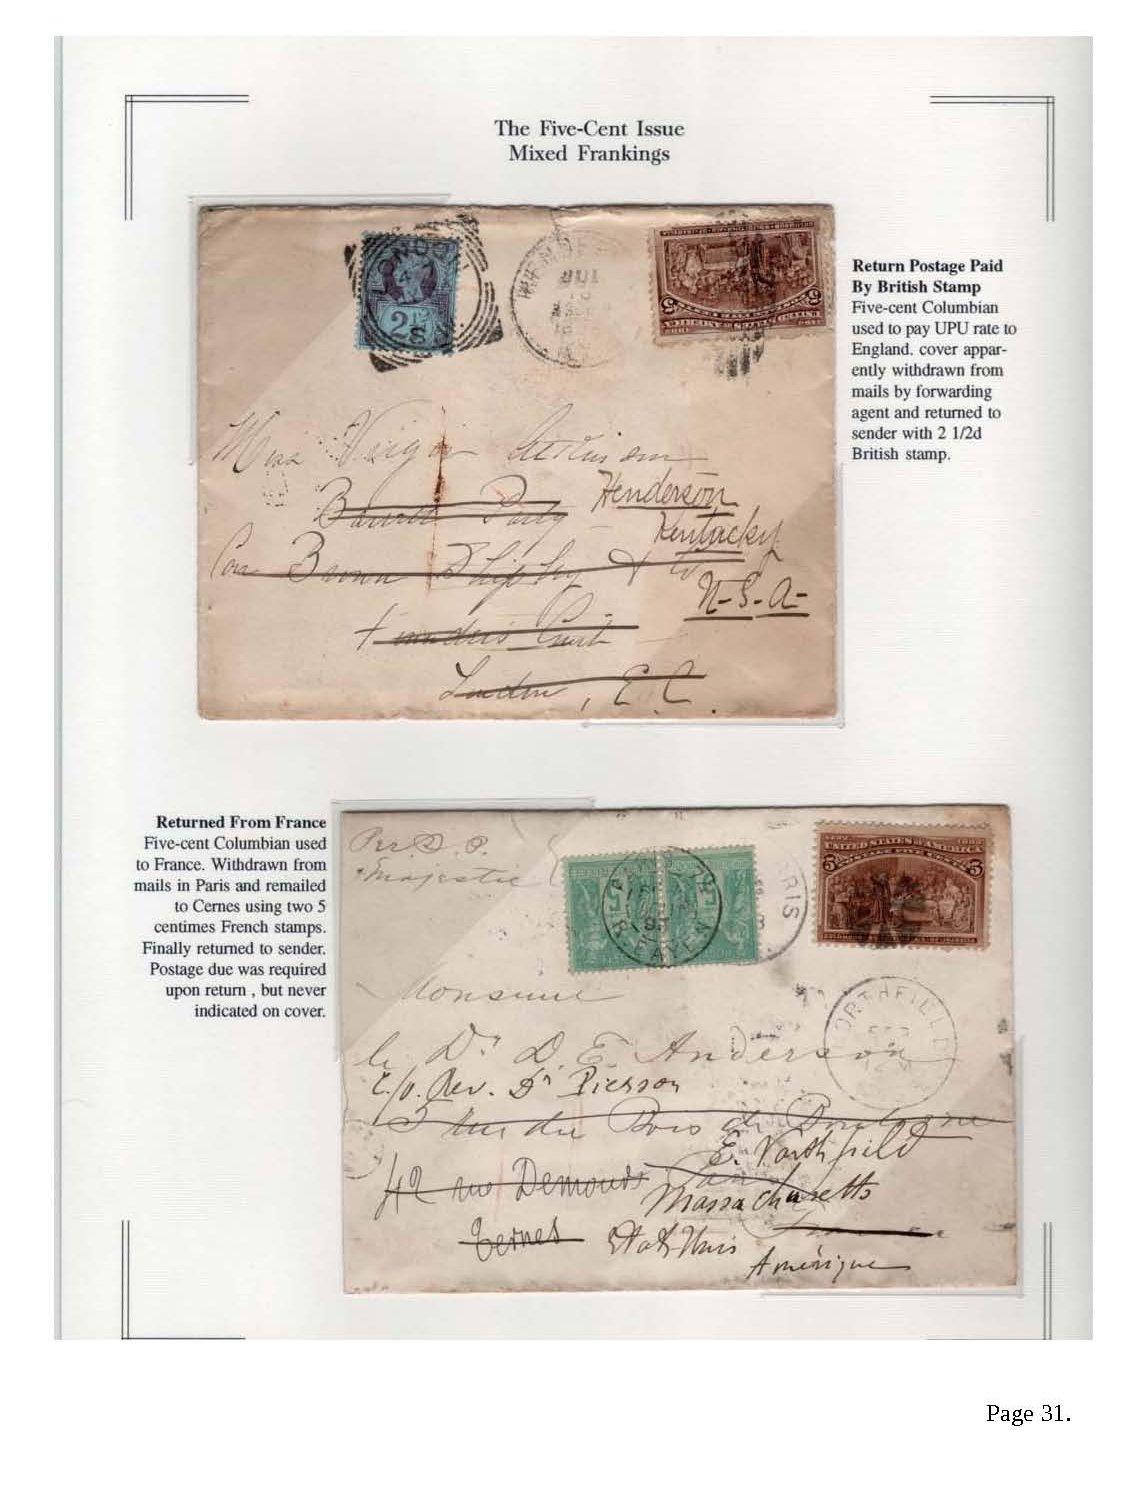 The Five-Cent Issue
Mixed Frankings
LONDON
2½
5
5
Return Postage Paid
By British Stamp
Five-cent Columbian
used to pay UPU rate to
England. cover appar-
ently withdrawn from
mails by forwarding
agent and returned to
sender with 2 1/2d
British stamp.
Miss
Henderson
Kentucky
U-S-A-
Brown Shipley & Co
Founders Court
London, E.C.
Returned From France
Five-cent Columbian used
to France. Withdrawn from
mails in Paris and remailed
to Cernes using two 5
centimes French stamps.
Finally returned to sender.
Postage due was required
upon return , but never
indicated on cover.
Per S.S.
Majestic
PARIS
UNITED STATES OF AMERICA
5
5
Monsieur
NORTHFIELD
le Dr D. E. Anderson
c/o. Rev. Dr Pierson
5 Rue du Bois de Boulogne
E. Northfield
42 rue
Massachusetts
Etats Unis
Amérique
Page 31.